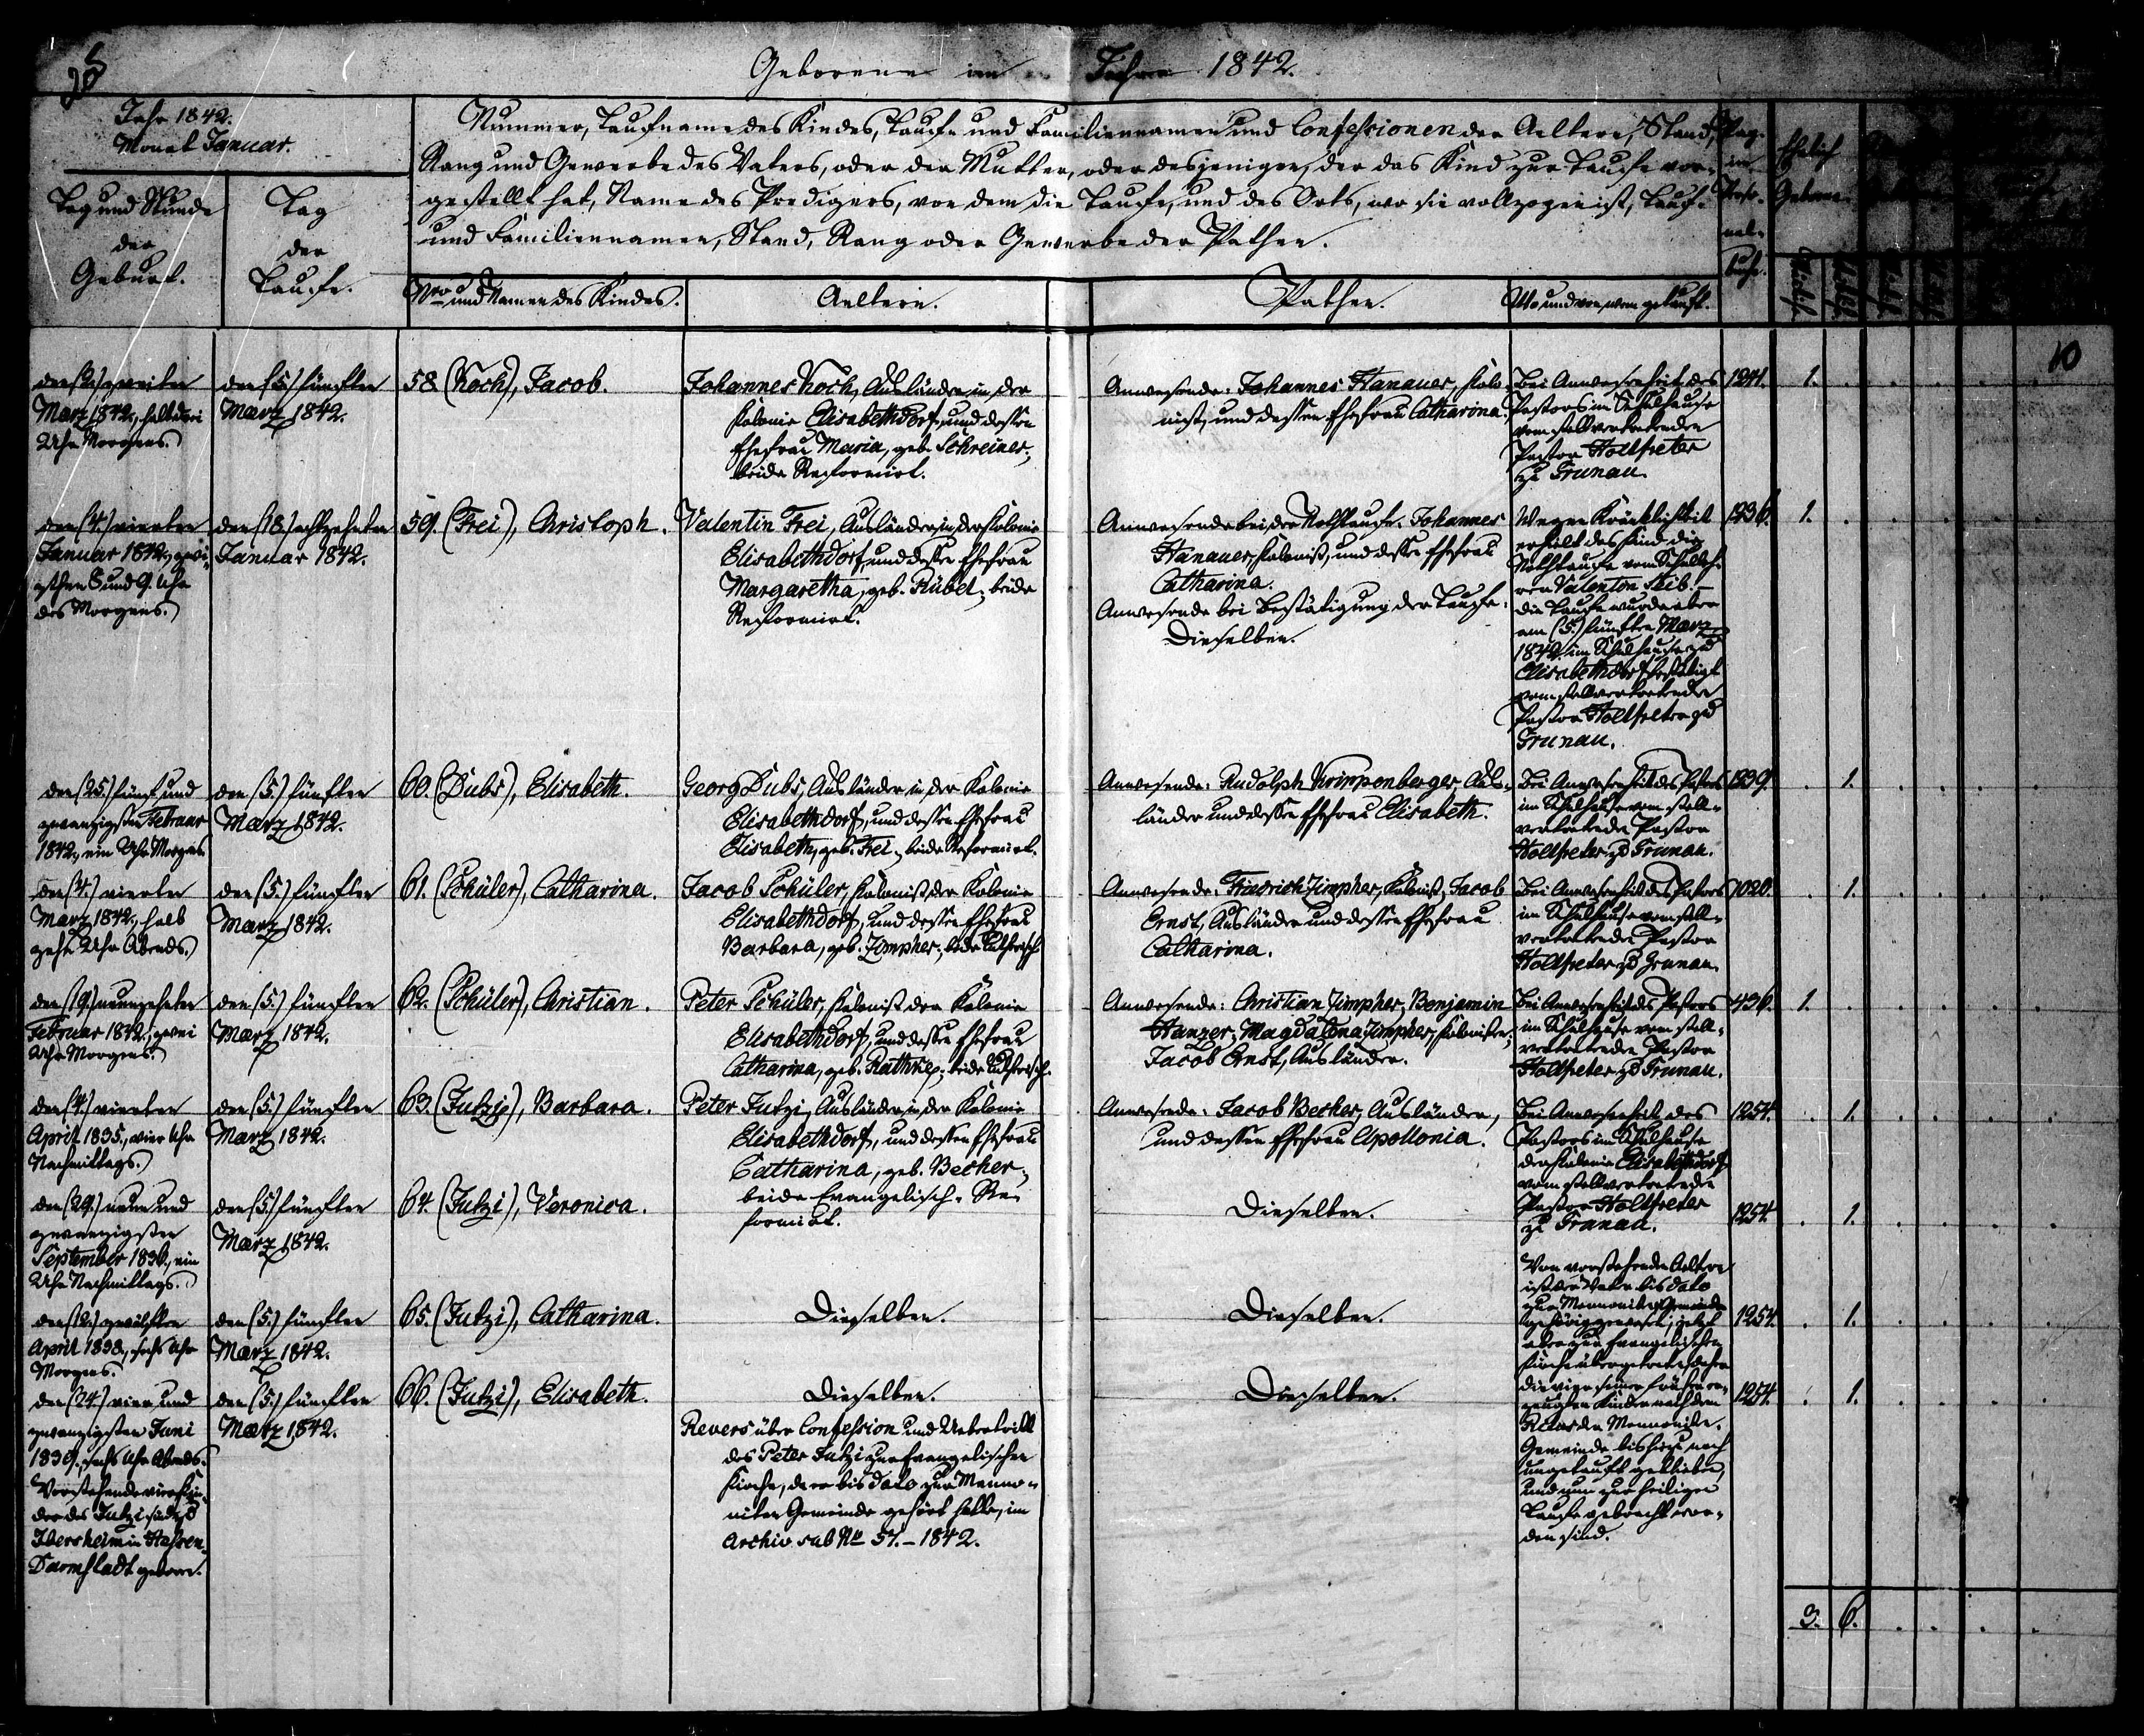 Geborene im Jahre 1842.
Jahr 1842.
Monat Januar.
Tag und Stunde
der
Geburt.
Tag
der
Taufe.
Nummer, Taufname des Kindes, Tauf- und Familiennamen und Confessionen der Aeltern, Stand,
Rang und Gewerbe des Vaters, oder der Mutter, oder desjenigen, der das Kind zur Taufe vor-
gestellt hat, Name des Predigers, von dem die Taufe, und des Orts, wo sie vollzogen ist, Tauf-
und Familiennamen, Stand, Rang oder Gewerbe der Pathen.
Nro und Namen des Kindes.
Aeltern.
Pathen.
Wo und von wem getauft.
Pag.
im
Perso-
nal-
buche.
Ehelich
Geborene
10
den (2.) zweiten
März 1842., halb drei
Uhr Morgens.
den (5.) fünften
März 1842.
58. (Koch), Jacob.
Johannes Koch, Ausländer in der
Kolonie Elisabethdorf, und dessen
Ehefrau Maria, geb. Schreiner;
beide Reformirt.
Anwesende: Johannes Hanauer, Kolo-
nist, und dessen Ehefrau Catharina.
Bei Anwesenheit des
Pastors im Schulhause
vom stellvertretenden
Pastor Holtfreter
zu Grunau.
1241.
1.
den (4.) vierten
Januar 1842., zwi-
schen 8 und 9. Uhr
des Morgens.
den (18.) achtzehnten
Januar 1842.
59. (Frei), Christoph.
Valentin Frei, Ausländer in der Kolonie
Elisabethdorf, und dessen Ehefrau
Margaretha, geb. Rübel; beide
Reformirt.
Anwesende bei der Nothtaufe. Johannes
Hanauer, Kolonist, und dessen Ehefrau
Catharina.
Anwesende bei Bestätigung der Taufe:
Dieselben.
Wegen Kränklichkeit
erhielt das Kind die
Nothtaufe vom Schulleh-
rer Valenton Leib. –
die Taufe wurde aber
am (5.) fünften März
1842. im Schulhause zu
Elisabethdorf bestätigt
vom stellvertretenden
Pastor Holtfreter zu
Grunau.
1236.
1.
den (25.) fünf und
zwanzigsten Februar
1842., ein Uhr Morgens.
den (5.) fünften
März 1842.
60. (Dubs), Elisabeth.
Georg Dubs, Ausländer in der Kolonie
Elisabethdorf, und dessen Ehefrau
Elisabeth, geb. Frei; beide Reformirt.
Anwesende: Rudolph Krimpenberger, Aus-
länder und dessen Ehefrau Elisabeth.
Bei Anwesenheit des Pastors
im Schulhause vom stell-
vertretenden Pastor
Holtfreter zu Grunau.
1239.
1.
den (4.) vierten
März 1842., halb
zehn Uhr Abends.
den (5.) fünften
März 1842.
61. (Schüler), Catharina.
Jacob Schüler, Kolonist der Kolonie
Elisabethdorf, und dessen Ehefrau
Barbara, geb. Zimpher; beide Lutherisch
Anwesende: Friedrich Zimpher, Kolonist, Jacob
Ernst, Ausländer und dessen Ehefrau
Catharina.
Bei Anwesenheit des Pastors
im Schulhause vom stell-
vertretenden Pastor
Holtfreter zu Grunau.
1020.
1.
den (19.) neunzehnten
Februar 1842., zwei
Uhr Morgens.
den (5.) fünften
März 1842.
62. (Schüler), Christian.
Peter Schüler, Kolonist der Kolonie
Elisabethdorf, und dessen Ehefrau
Catharina, geb. Rathke; beide Lutherisch.
Anwesende: Christian Zimpher, Benjamin
Hanzer, Magdalena Zimpher, Kolonisten;
Jacob Ernst, Ausländer.
Bei Anwesenheit des Pastors
im Schulhause vom stell-
vertretenden Pastor
Holtfreter zu Grunau.
436.
1.
den (4.) vierten
April 1835., vier Uhr
Nachmittags.
den (5.) fünften
März 1842.
63. (Jutzi), Barbara.
Peter Jutzi, Ausländer in der Kolonie
Elisabethdorf, und dessen Ehefrau
Catharina, geb. Becher;
beide Evangelisch-Re-
formirt.
Anwesende: Jacob Becher, Ausländer,
und dessen Ehefrau Apollonia.
Bei Anwesenheit des
Pastors im Schulhause
der Kolonie Elisabethdorf
vom stellvertretenden
Pastor Holtfreter
zu Grunau.
1254.
1.
den (29.) neun und
zwanzigsten
September 1836., ein
Uhr Nachmittags.
den (5.) fünften
März 1842.
64. (Jutzi), Veronica.
Dieselben.
1254.
1.
Von vorstehenden Aeltern
ist der Vater bis dato
zur Mennoniten Gemeinde
gehörig gewesen; jetzt
aber zur Evangelischen
Kirche übergetreten, daher
die vier seiner früher er-
zeugten Kinder nach dem
Ritus der Mennoniten-
Gemeinde bis hiezu noch
ungetauft geblieben,
und nun zur heiligen
Taufe gebracht wor-
den sind.
den (12.) zwölften
April 1838., sechs Uhr
Morgens.
den (5.) fünften
März 1842.
65. (Jutzi), Catharina.
Dieselben.
Dieselben.
1254.
1.
den (24.) vier und
zwanzigsten Juni
1839., sechs Uhr Abends.
Vorstehende vier Kin-
der des Jutzi sind zu
Ibersheim in Hessen-
Darmstadt geboren.
den (5.) fünften
März 1842.
66. (Jutzi), Elisabeth.
Dieselben.
Revers über Confession und Uebertritt
des Peter Jutzi zur Evangelischen
Kirche, der er bis dato zur Menno-
niten Gemeinde gehört hatte, im
Archiv sub No 57. – 1842.
Dieselben.
1254.
1.
3. 6.